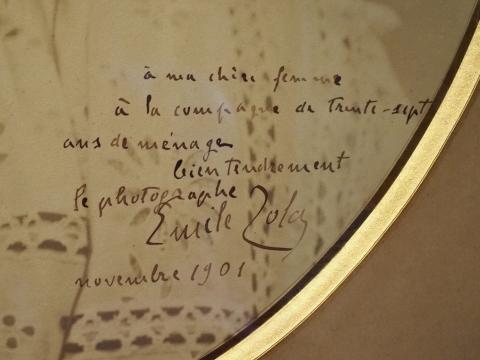 à ma chère femme
à la compagne de trente-sept
ans de ménage
bien tendrement
le photographe
Emile Zola
novembre 1901